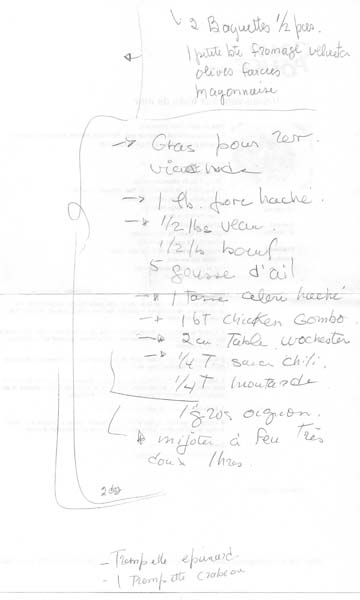 2 Baguettes 1/2 pres.
1 petite bte fromage velveeta
olives farcies
mayonnaise
Gras pour
viande
1 lb. porc haché.
1/2 lbs veau.
1/2 lb boeuf
5 gousse d'ail
1 tasse celeri haché
1 bt chicken Gombo.
2 cu. Table Wochester
1/4 T. sauce chili.
1/4 T moutarde
1 gros oignon.
mijoter à feu Très
doux 1 hres.
- Trompette epinard.
- 1 Trompette crabeau